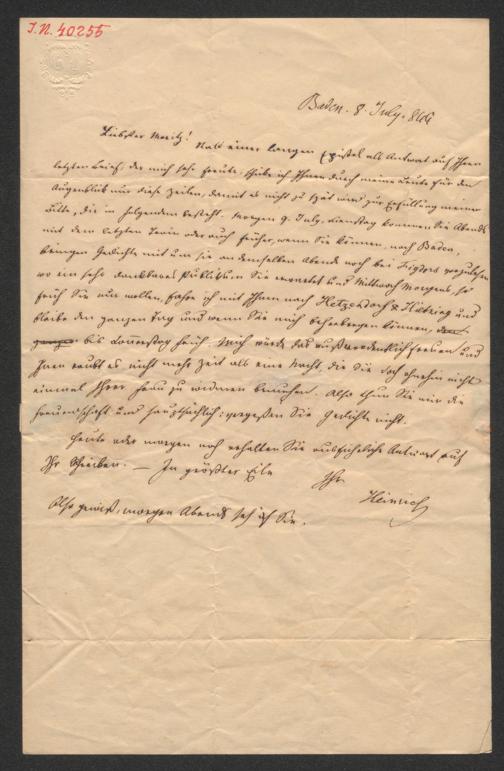 I.N. 40255
Baden. 8. July. 86
Liebster Moritz!
Statt einer langen Epistel als Antwort auf Ihren
letzten Brief, der mich sehr freute, schicke ich Ihnen durch meine Leute für den
Augenblick nur diese Zeilen, damit es nicht zu spät wird zur Erfüllung meiner
Bitte, die in folgendem besteht. Morgen 9. July, Dienstag kommen Sie Abends
mit dem letzten Train oder auch früher, wenn Sie können, nach Baden,
bringen Gedichte mit um sie an demselben Abend noch bei Figdors vorzulesen
wo ein sehr dankbares Publikum Sie erwartet und Mittwoch Morgens, so
früh Sie nur wollen, fahre ich mit Ihnen nach Hetzendorf &
bleibe den ganzen Tag und wenn Sie mich beherbergen können,
bis Donnerstag früh. Mich würde das außerordentlich freuen und
Ihnen raubt es nicht mehr Zeit als eine Nacht, die Sie doch ohnehin nicht
einmal Ihrer Frau zu widmen brauchen. Also thun Sie mir die
Freundschaft und hauptsächlich: vergeßen Sie Gedichte nicht.
Heute oder morgen noch erhalten Sie ausführliche Antwort auf
Ihr Schreiben. — In größter Eile
Ihr
Heinrich
Also gewiß, morgen Abends seh ich Sie.